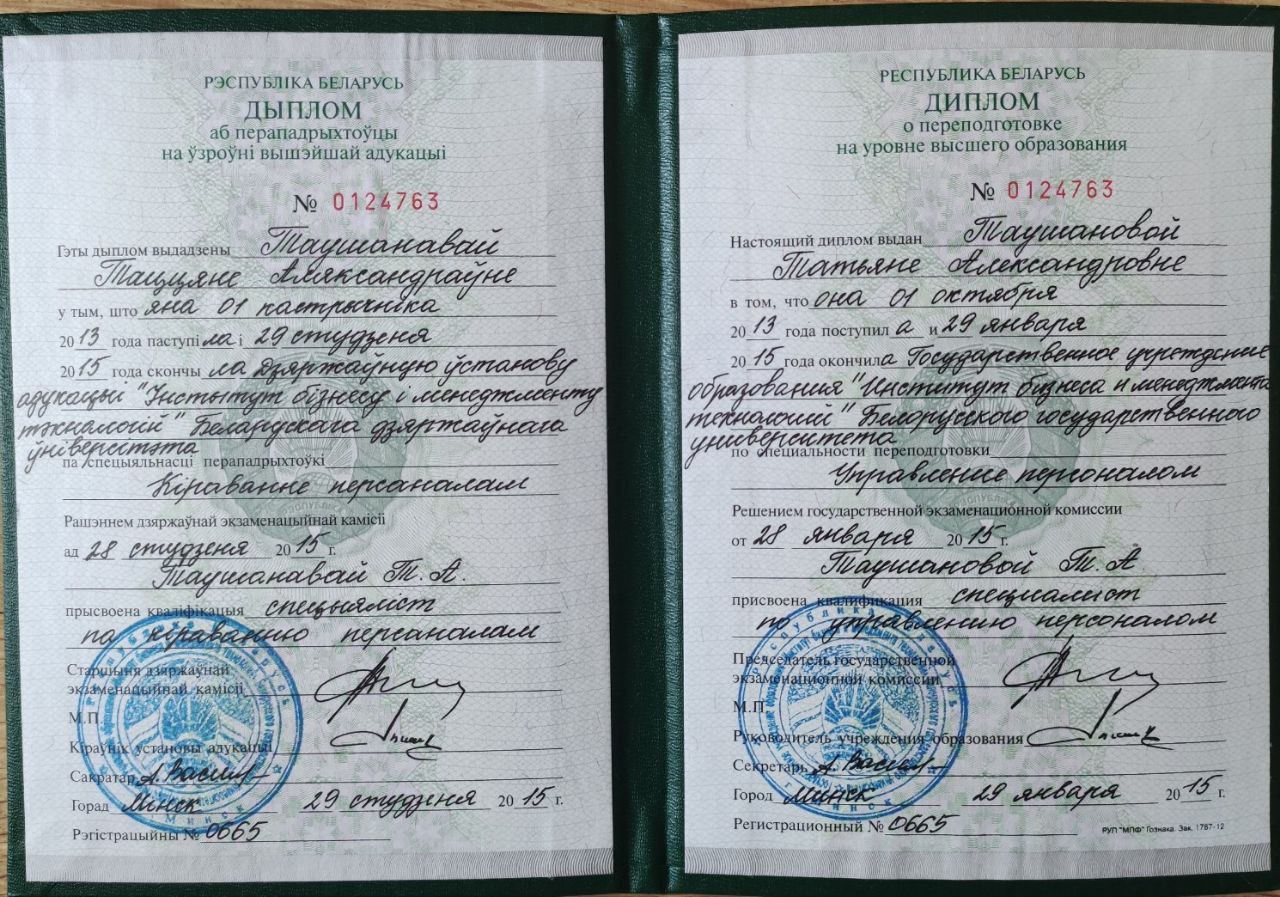 РЭСПУБЛІКА БЕЛАРУСЬ
ДЫПЛОМ
аб перападрыхтоўцы
на ўзроўні вышэйшай адукацыі
№ 0124763
Гэты дыплом выдадзены Таушанавай
Таццяне Аляксандраўне
у тым, што яна 01 кастрычніка
2013 года паступіла і 29 студзеня
2015 года скончыла дзяржаўную ўстанову
адукацыі "Інстытут бізнесу і менеджменту
тэхналогій" Беларускага дзяржаўнага
ўніверсітэта
па спецыяльнасці перападрыхтоўкі
Кіраванне персаналам
Рашэннем дзяржаўнай экзаменацыйнай камісіі
ад 28 студзеня 2015 г.
Таушанавай Т. А.
прысвоена кваліфікацыя спецыяліст
па кіраванню персаналам
Старшыня дзяржаўнай
экзаменацыйнай камісіі
М.П.
Кіраўнік установы адукацыі
Сакратар
Горад Минск 29 студзеня 2015 г.
Рэгістрацыйны № 0665
РЕСПУБЛИКА БЕЛАРУСЬ
ДИПЛОМ
о переподготовке
на уровне высшего образования
№ 0124763
Настоящий диплом выдан Таушановой
Татьяне Александровне
в том, что она 01 октября
2013 года поступила и 29 января
2015 года окончила Государственное учреждение
образования "Институт бизнеса и менеджмента
технологий" Белорусского государственного
университета
по специальности переподготовки
Управление персоналом
Решением государственной экзаменационной комиссии
от 28 января 2015 г.
Таушановой Т. А
присвоена квалификация специалист
по управлению персоналом
Председатель государственной
экзаменационной комиссии
М.П.
Руководитель учреждения образования
Секретарь
Город Минск 29 января 2015 г.
Регистрационный № 0665
РУП "МПФ" Гознака. Зак. 1787-12